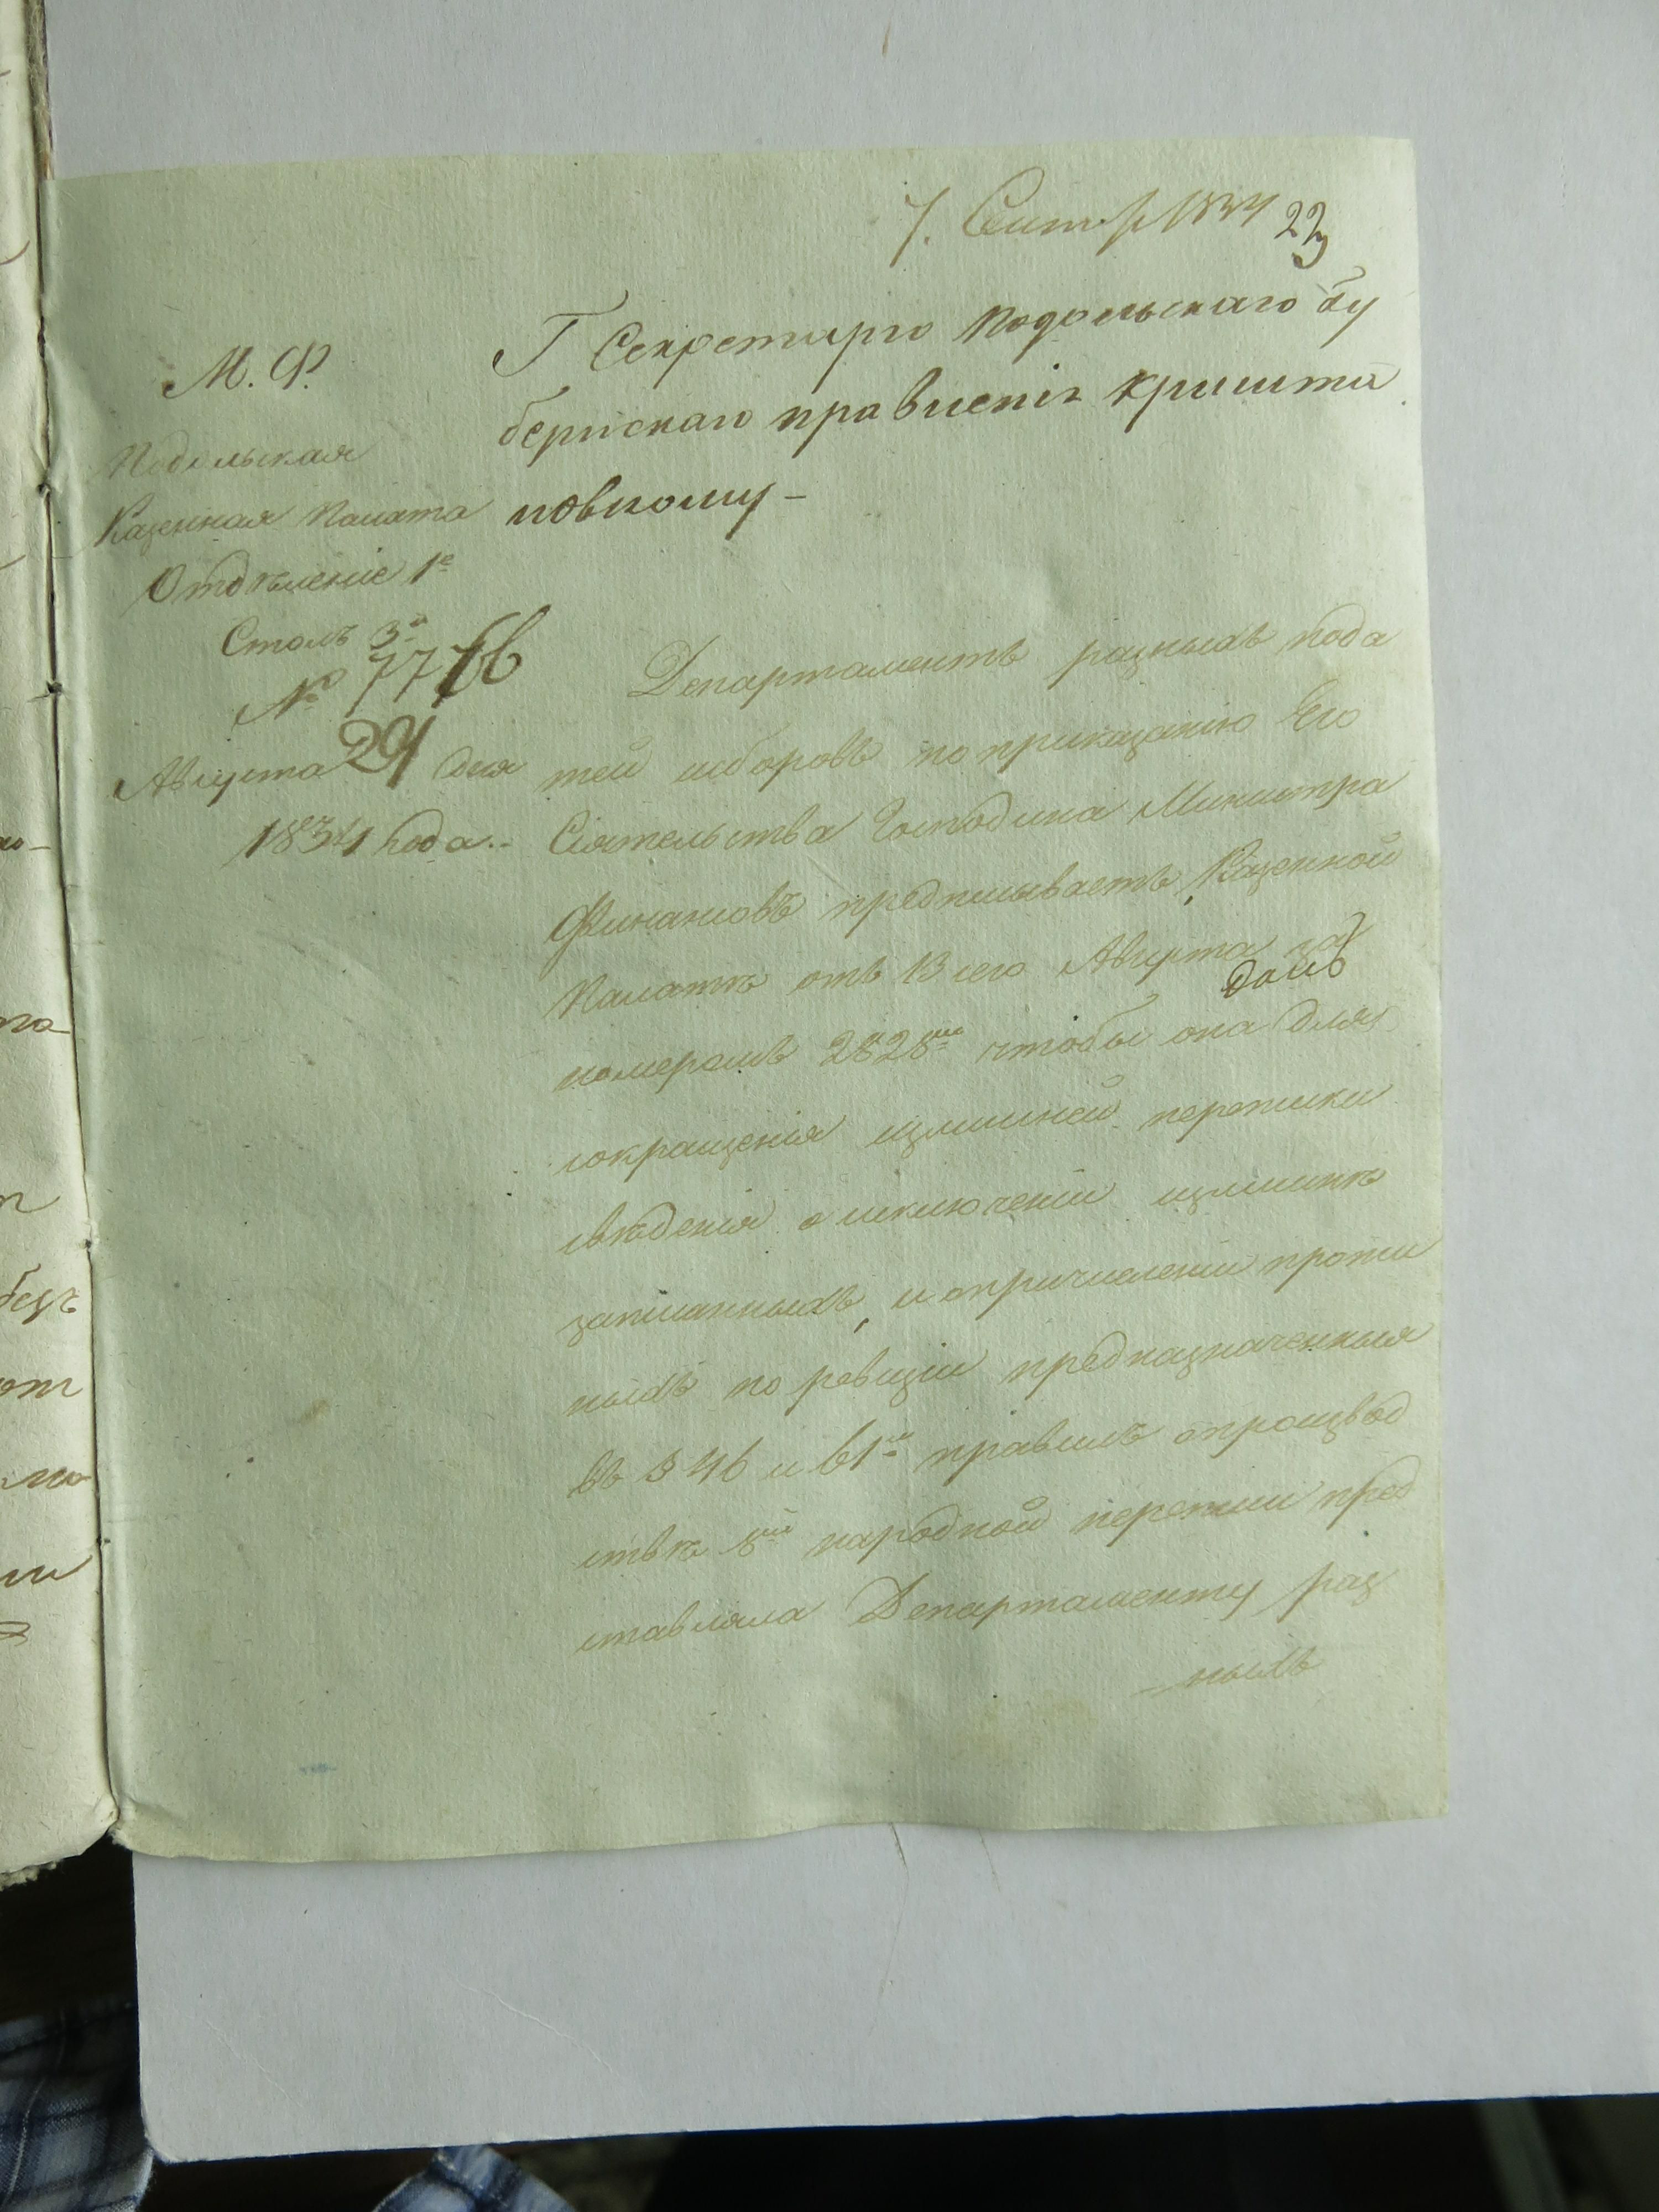 7. Сентяб 1834
22
М. Ф.
Подольская
Казенная Палата
Отдѣленіе 1е
Столъ 3й
№ 7776
Августа 29 дня
1834 года.
Г Секретарю Подольскаго Гу
бернскаго правленія Кришта
повкому –
Департаментъ разныхъ пода
тей исборовъ по приказанію Его
Сіятельства Господина Министра
Финансовъ предписываетъ Казенной
Палатѣ отъ 13 сего Августа за
номеромъ 2828мъ чтобы она для
сокращенія излишней переписки
свѣденія о исключеніи излишнѣ
записанныхъ, и опричисленіи пропи
ныхъ по ревизіи предназначенныя
въ § 46 и 61й правилъ опроизвод
ствѣ 8й народной переписи пред
ставляла Департаменту раз
ныхъ